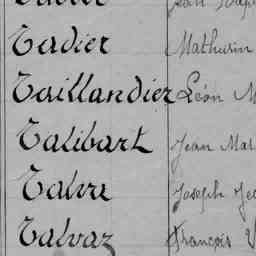 Tadier Mathurin
Taillandier Léon M
Talibart Jean Mat
Talvaz François V